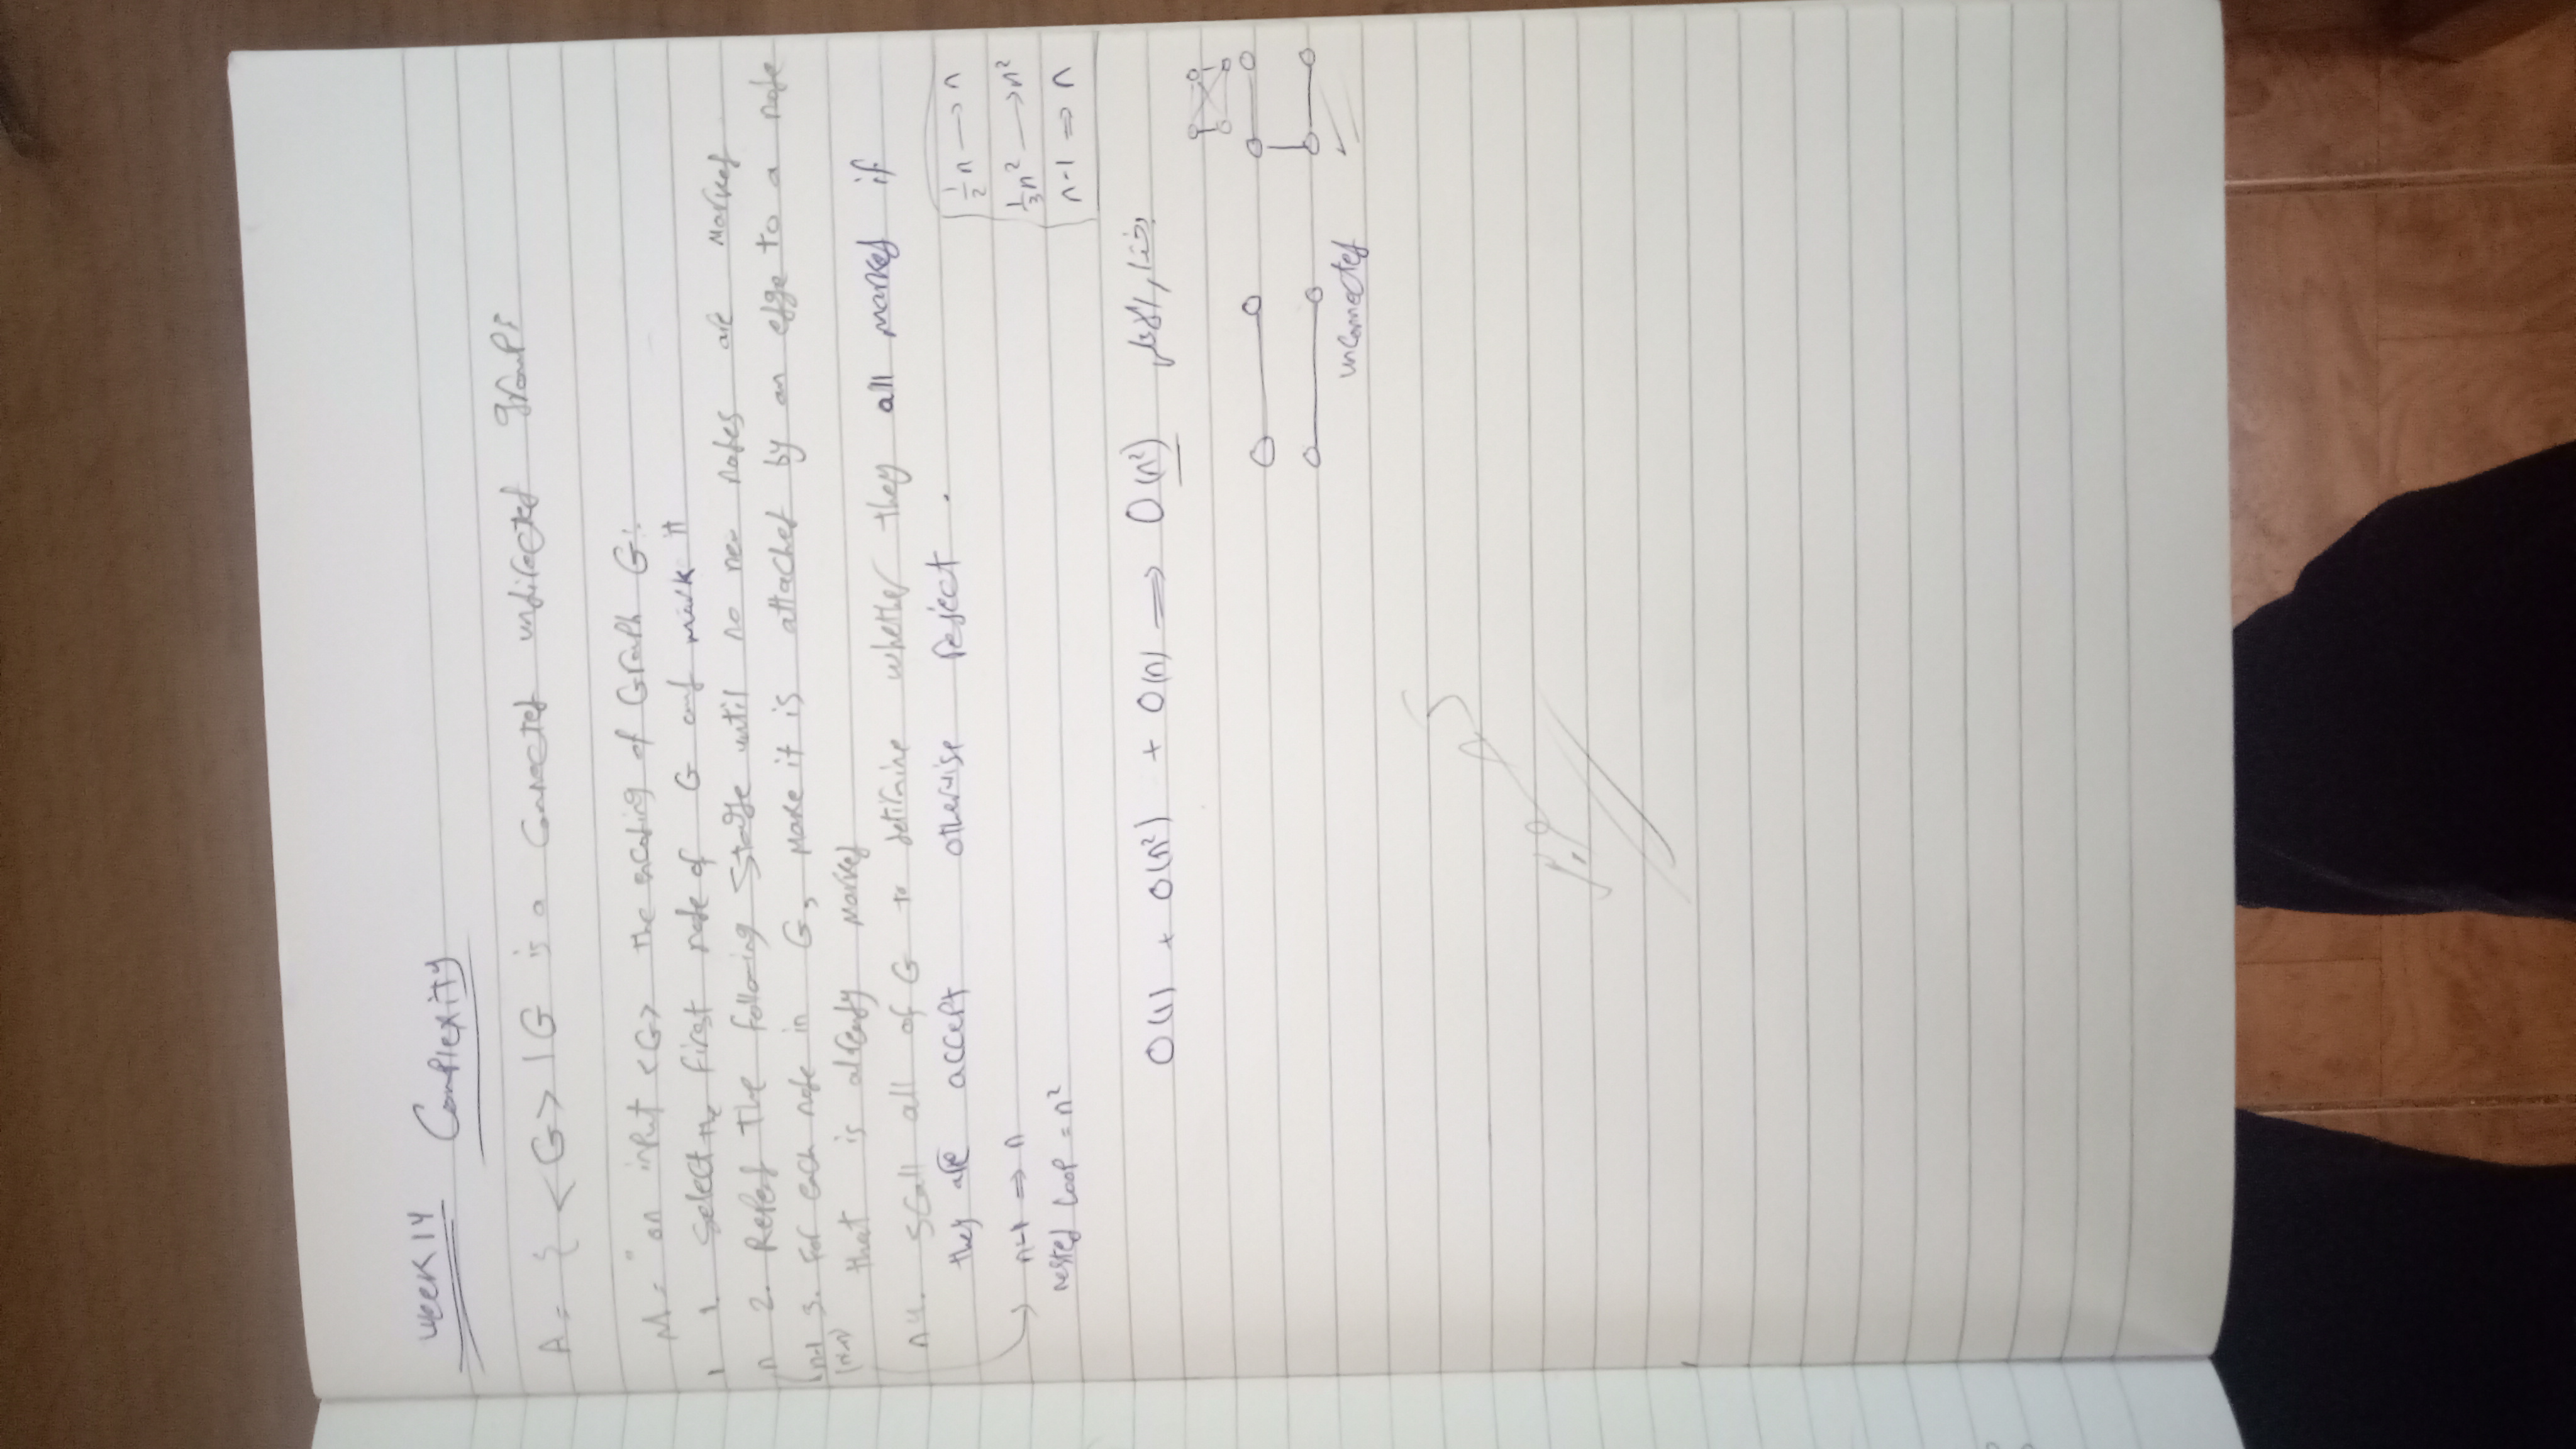 week 14 Complexity
A = { <G> | G is a connected undirected graph}
M = "on input <G> the encoding of Graph G:
1 1. Select the first node of G and mark it
n 2. Repeat the following stage until no new nodes are marked
n-1 3. For each node in G, make it is attached by an edge to a node
that is already marked
n 4. scall all of G to detirmine whether they all marked if
they are accept otherwise reject .
n-1 ⇒ n
nested loop = n²
1/2 n → n
1/3 n² → n²
n-1 ⇒ n
O(1) + O(n²) + O(n) ⇒ O(n²) بختار الاعلى
unconnected